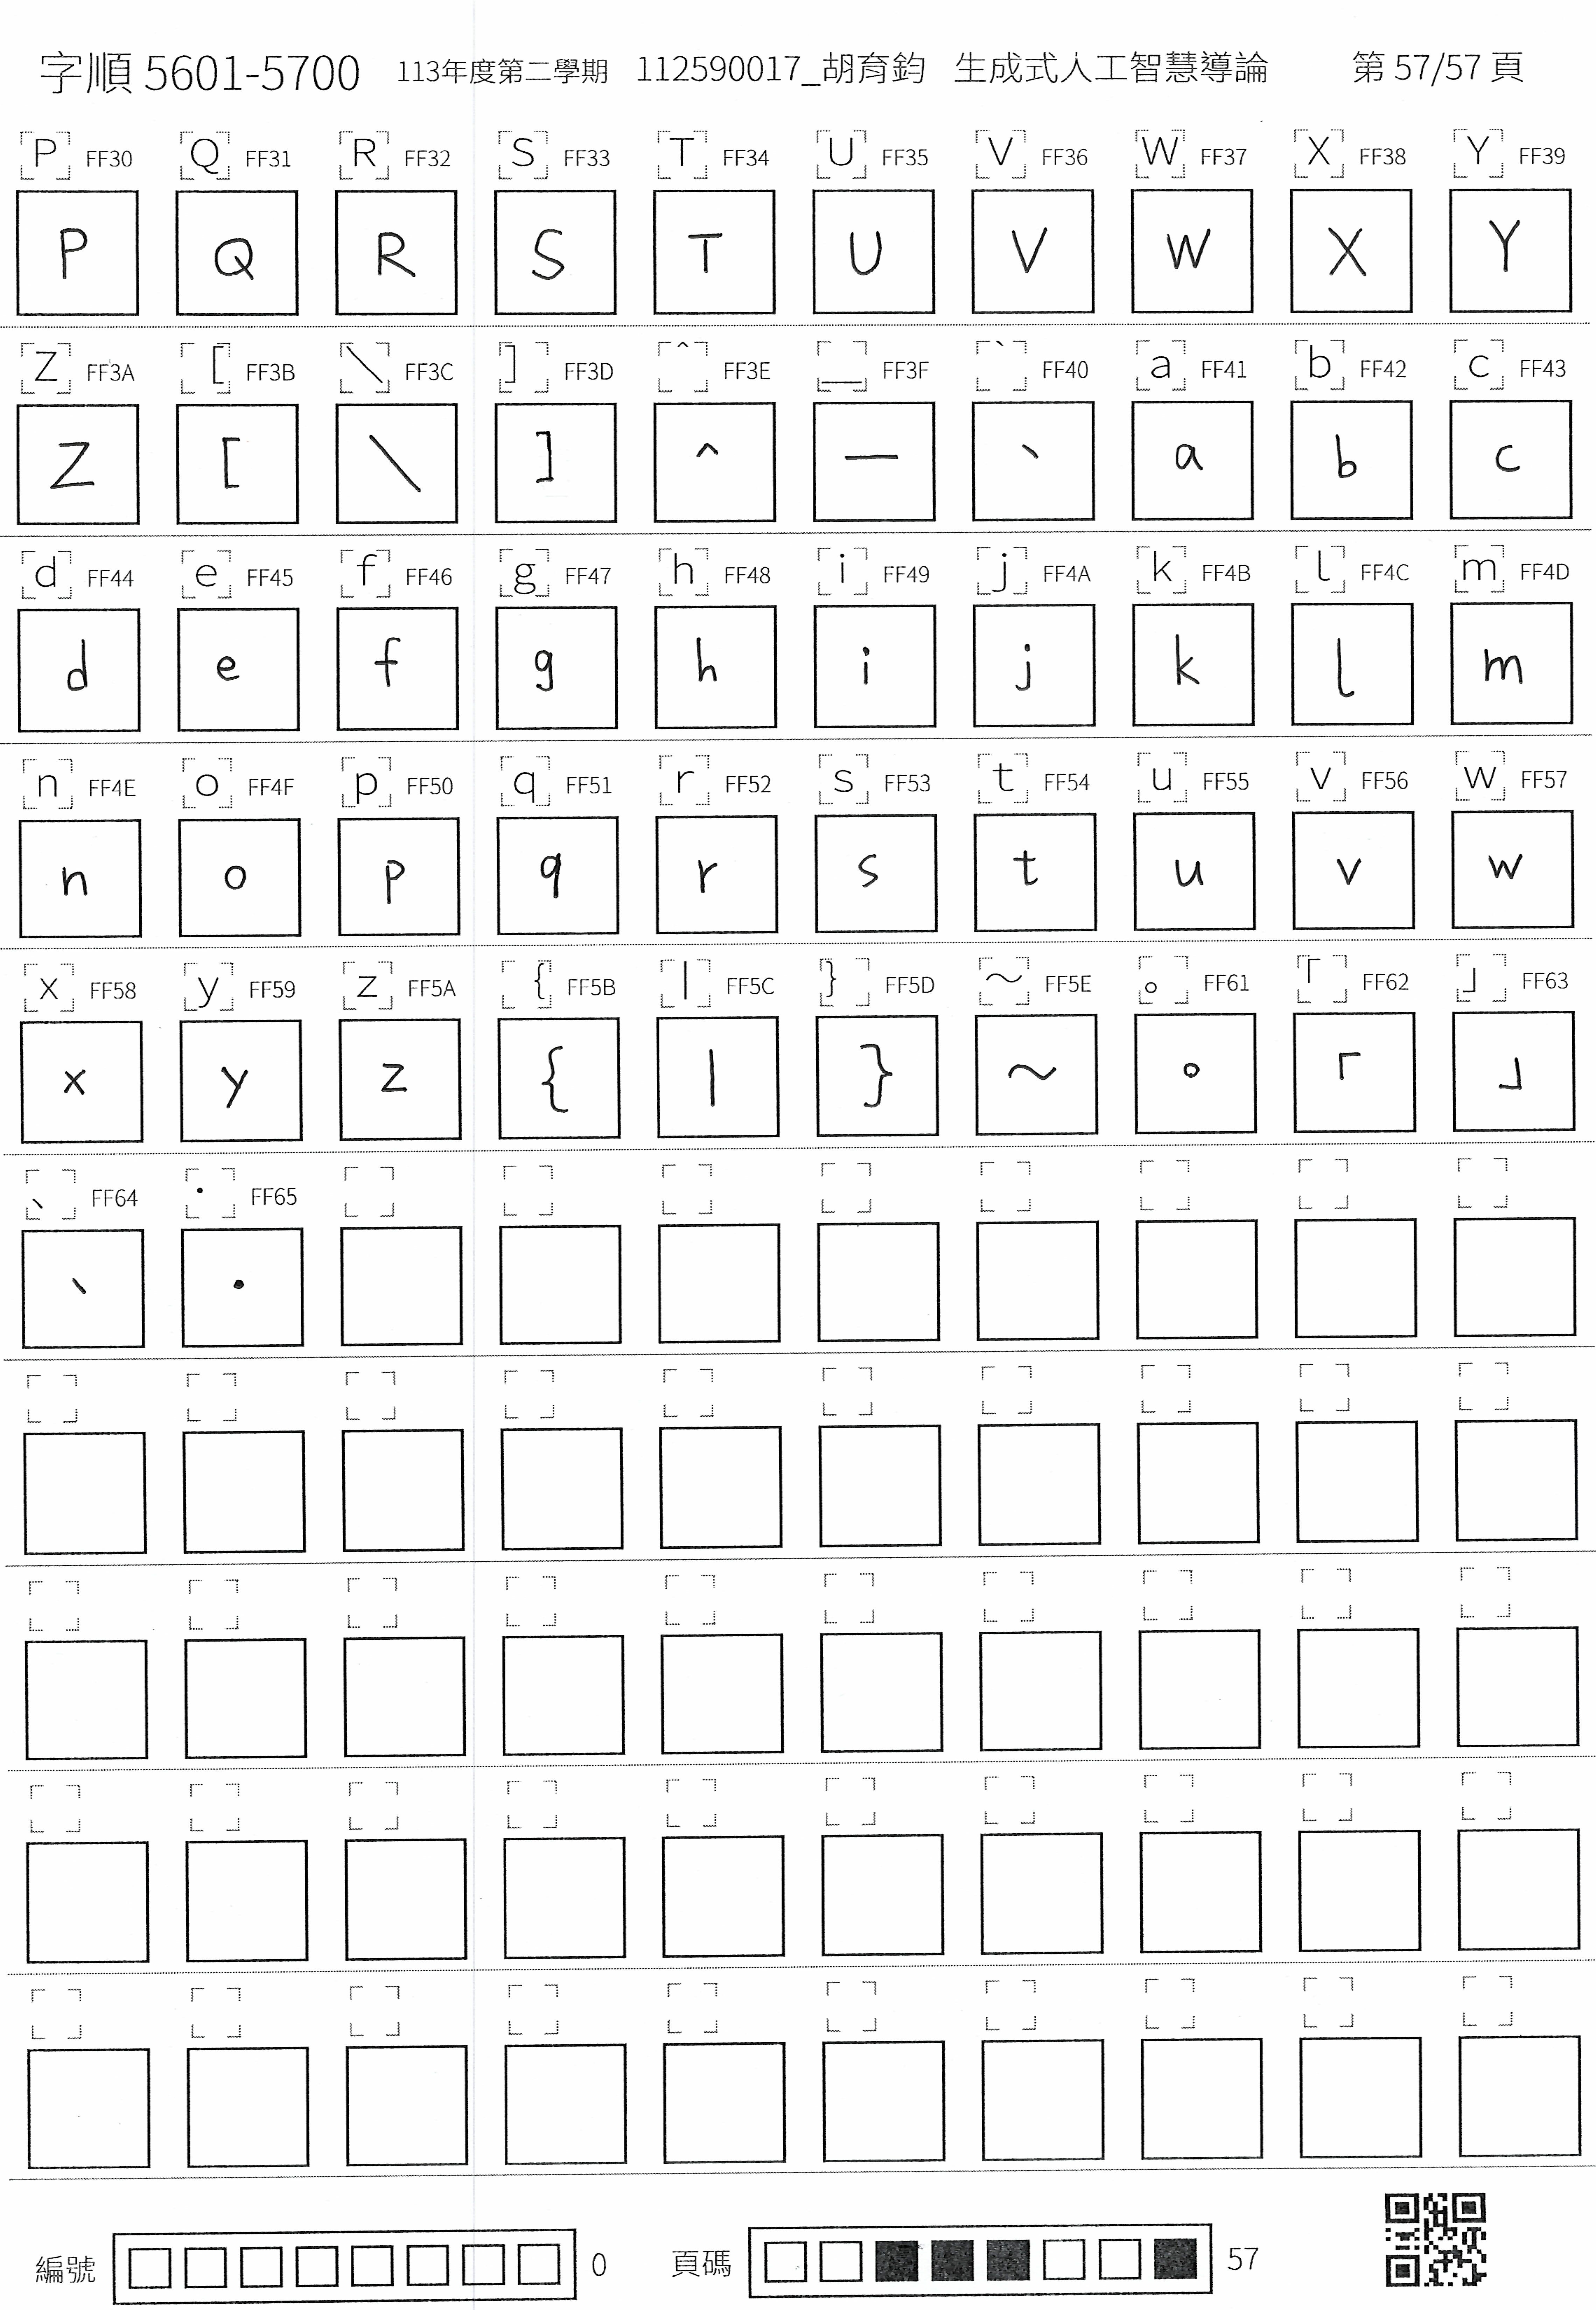 字順 5601-5700 113年度第二學期 112590017_胡育鈞 生成式人工智慧導論 第 57/57 頁
P FF30 Q FF31 R FF32 S FF33 T FF34 U FF35 V FF36 W FF37 X FF38 Y FF39
P Q R S T U V W X Y
Z FF3A [ FF3B \ FF3C ] FF3D ^ FF3E _ FF3F ` FF40 a FF41 b FF42 c FF43
Z [ \ ] ^ — ` a b c
d FF44 e FF45 f FF46 g FF47 h FF48 i FF49 j FF4A k FF4B l FF4C m FF4D
d e f g h i j k l m
n FF4E o FF4F p FF50 q FF51 r FF52 s FF53 t FF54 u FF55 v FF56 w FF57
n o p q r s t u v w
x FF58 y FF59 z FF5A { FF5B | FF5C } FF5D ~ FF5E 。 FF61 「 FF62 」 FF63
x y z { | } ~ 。 「 」
、 FF64 ・ FF65
、 ・
編號 0 頁碼 57